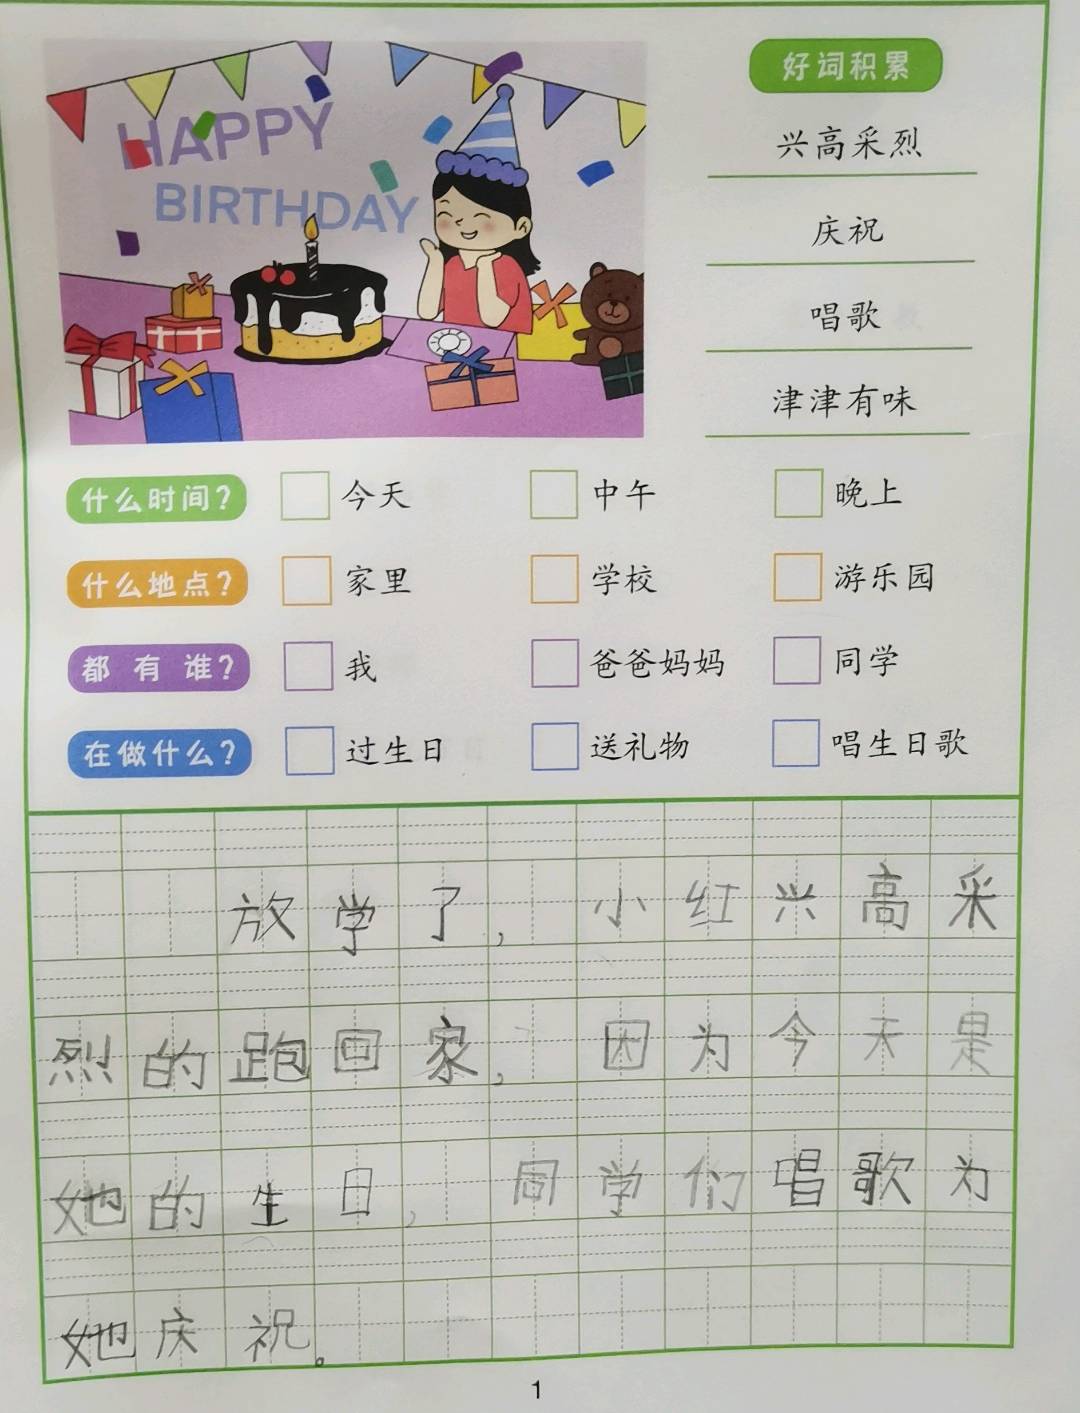 HAPPY
BIRTHDAY
好词积累
兴高采烈
庆祝
唱歌
津津有味
什么时间？ 今天 中午 晚上
什么地点？ 家里 学校 游乐园
都有谁？ 我 爸爸妈妈 同学
在做什么？ 过生日 送礼物 唱生日歌
放学了，小红兴高采
烈的跑回家，因为今天是
她的生日，同学们唱歌为
她庆祝。
1